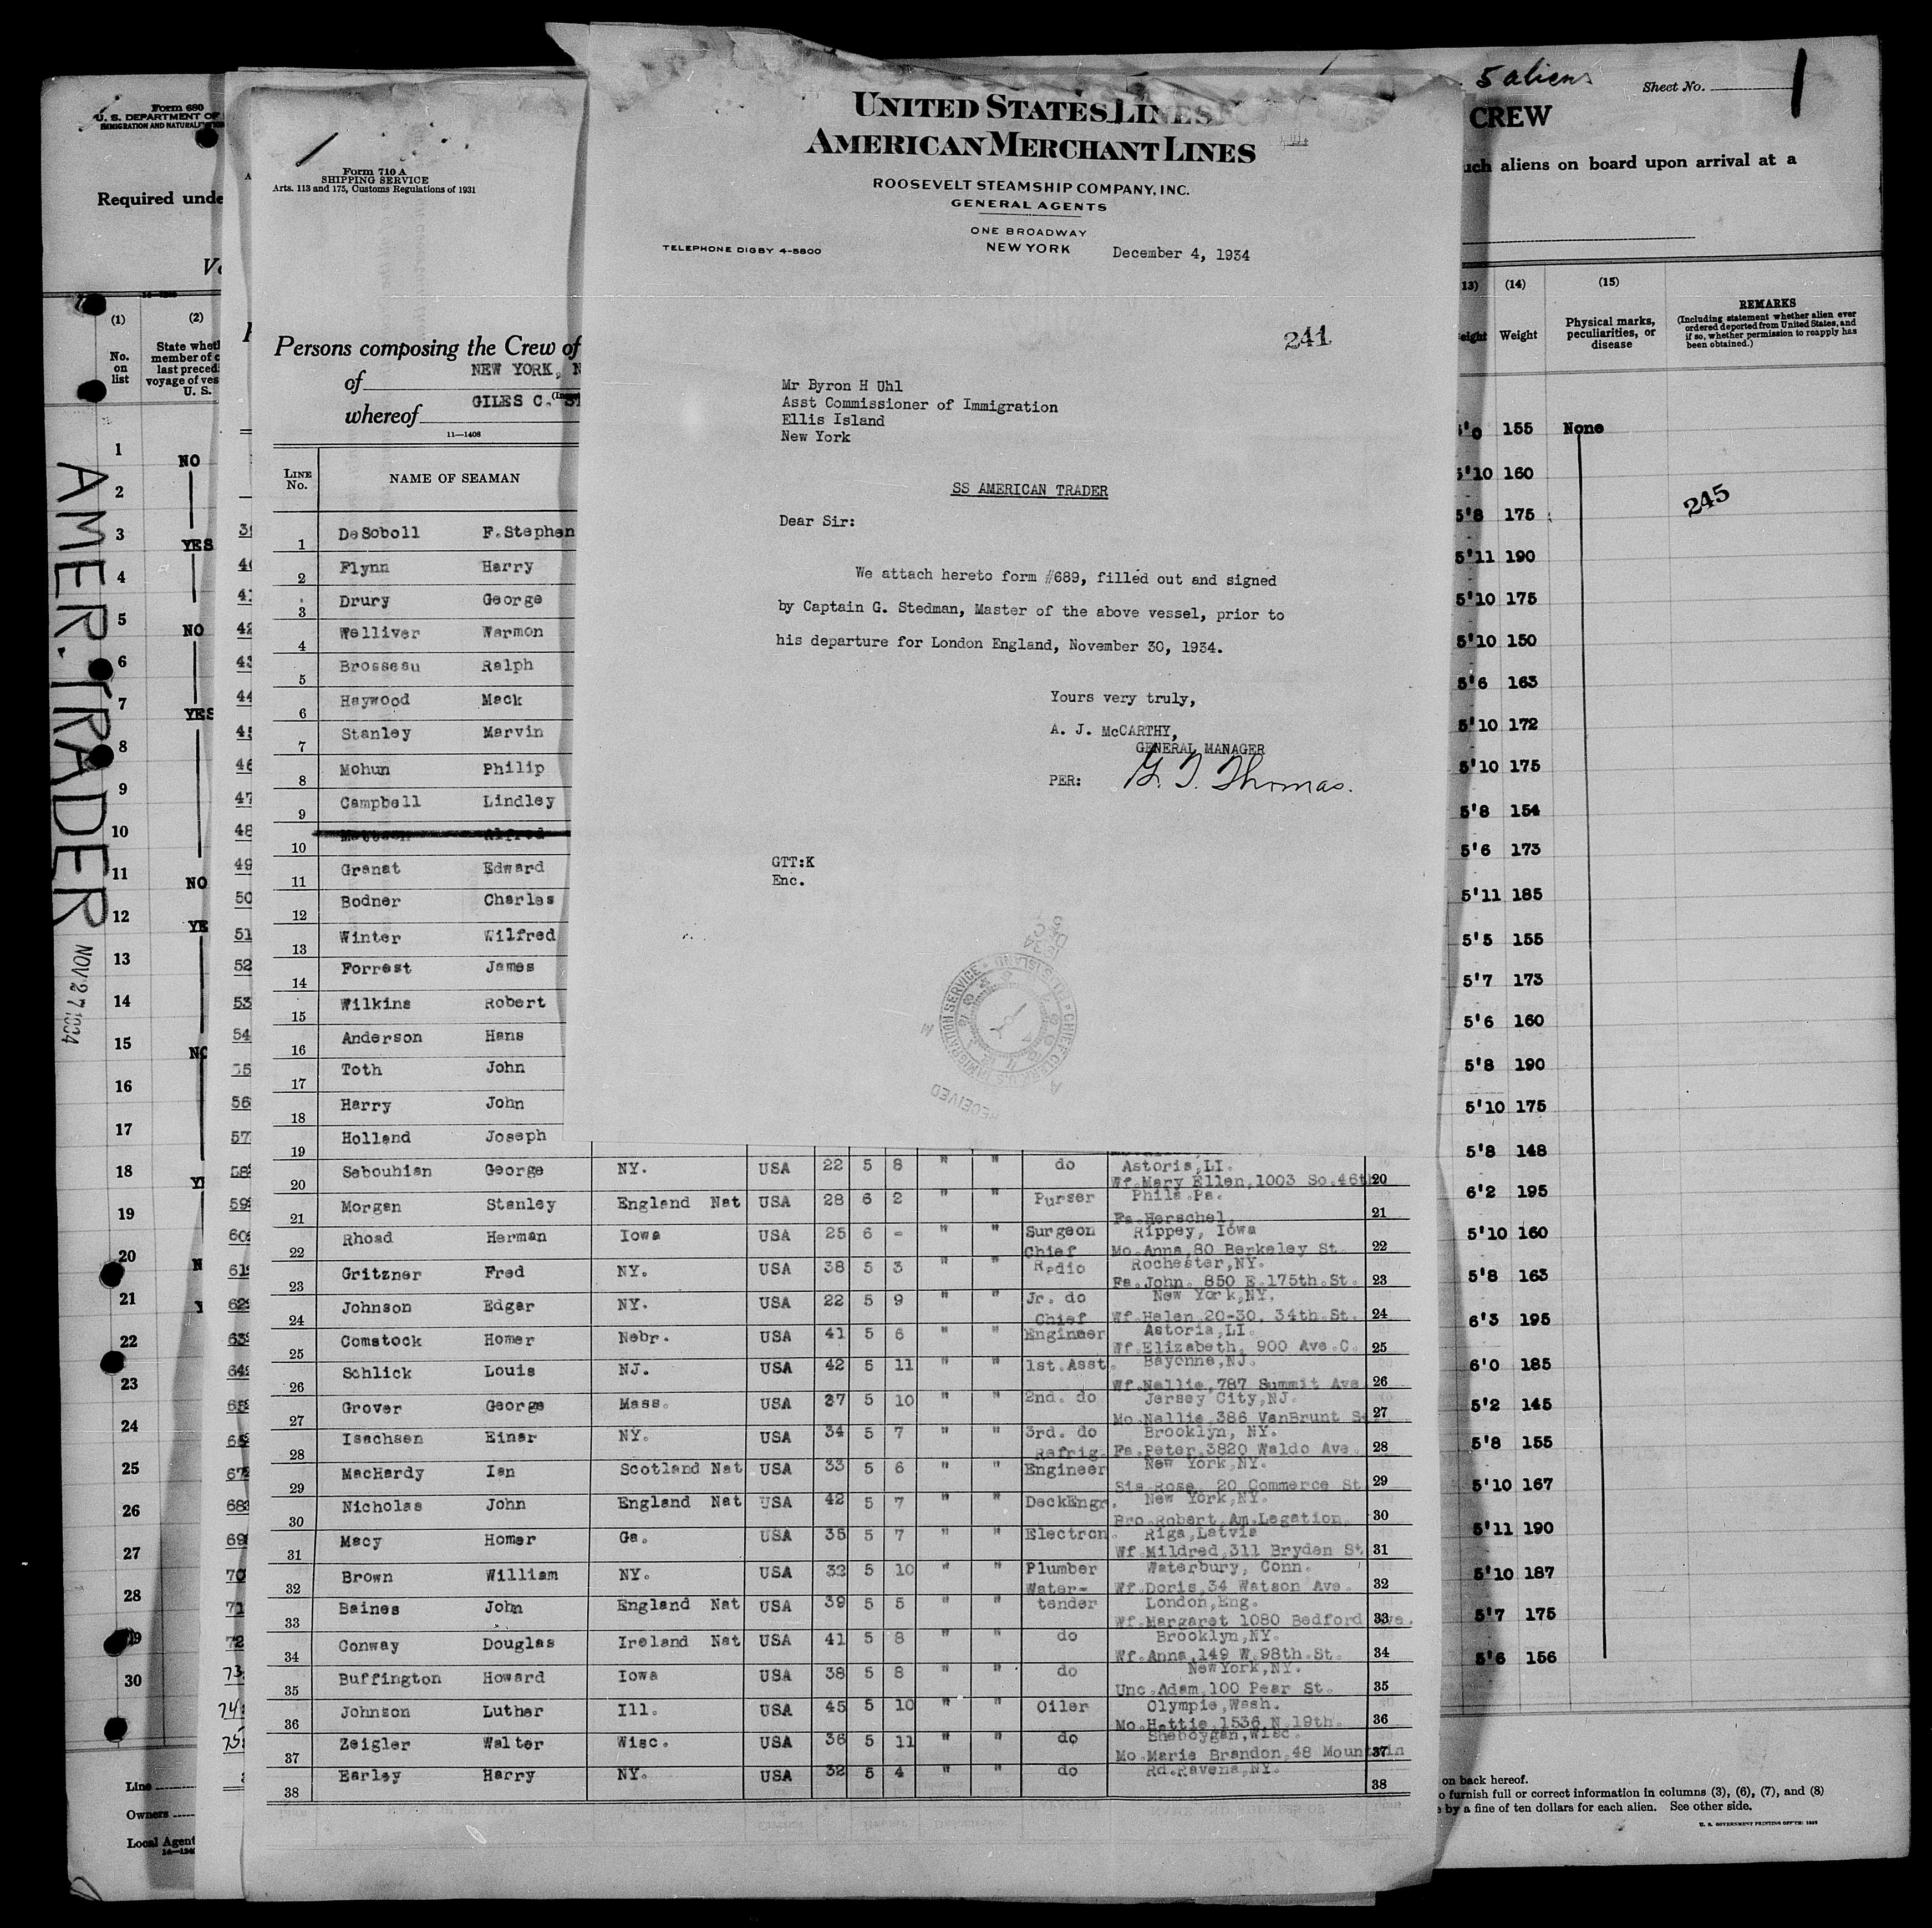 Form 680
U. S. DEPARTMENT OF
IMMIGRATION AND
Required unde
(1)
(2)
No. on list
State whet
member of c
last preced
voyage of ves
U. S.
1 NO
2
3 YES
4
5 NO
6
7 YES
8
9
10
11 NO
12 YE
13
14
15 NO
16
17
18 Y
19
20 N
21 Y
22
23
24
25
26
27
28
29
30
Line
Owners
Local Agent
AMER. TRADER
NOV 27 1934
42
43
44
46
47
48
49
50
51
52
53
54
56
57
58
59
60
61
62
63
64
67
68
69
70
71
72
73
74
75
Form 710 A
SHIPPING SERVICE
Arts. 113 and 175, Customs Regulations of 1931
Persons composing the Crew of
of NEW YORK, N
whereof GILES C. ST
11—1408
LINE No. NAME OF SEAMAN
1 DeSoboll F.Stephen
2 Flynn Harry
3 Drury George
4 Welliver Warmon
5 Brosseau Ralph
6 Haywood Mack
7 Stanley Marvin
8 Mohun Philip
9 Campbell Lindley
10 Alfred
11 Granat Edward
12 Bodner Charles
13 Winter Wilfred
14 Forrest James
15 Wilkins Robert
16 Anderson Hans
17 Toth John
18 Harry John
19 Holland Joseph
20 Sebouhian George NY. USA 22 5 8 " " do Astoria,LI. 20
21 Morgan Stanley England Nat USA 28 6 2 " " Purser Wf.Mary Ellen,1003 So.46th Phila.Pa. 21
22 Rhoad Herman Iowa USA 25 6 - " " Surgeon Fa.Herschel, Rippey, Iowa 22
23 Gritzner Fred NY. USA 38 5 3 " " Chief Radio Mo.Anna,80 Berkeley St. Rochester,NY. 23
24 Johnson Edgar NY. USA 22 5 9 " " Jr. do Fa.John. 850 E.175th.St. New York,NY. 24
25 Comstock Homer Nebr. USA 41 5 6 " " Chief Engineer Wf.Helen 20-30. 34th.St. Astoria,LI. 25
26 Schlick Louis NJ. USA 42 5 11 " " 1st.Asst. Wf.Elizabeth, 900 Ave.C. Bayonne,NJ. 26
27 Grover George Mass. USA 37 5 10 " " 2nd. do Wf.Nellie,787 Summit Ave Jersey City,NJ. 27
28 Isachsen Einar NY. USA 34 5 7 " " 3rd. do Mo.Nellie,386 VanBrunt S Brooklyn, NY. 28
29 MacHardy Ian Scotland Nat USA 33 5 6 " " Refrig. Engineer Fa.Peter,3820 Waldo Ave. New York,NY. 29
30 Nicholas John England Nat USA 42 5 7 " " DeckEngr. Sis.Rose, 20 Commerce St New York,NY. 30
31 Macy Homer Ga. USA 35 5 7 " " Electron. Bro.Robert,Am.Legation, Riga,Latvia 31
32 Brown William NY. USA 32 5 10 " " Plumber Wf.Mildred,311 Bryden St. Waterbury, Conn. 32
33 Baines John England Nat USA 39 5 5 " " Water-tender Wf.Doris,34 Watson Ave. London,Eng. 33
34 Conway Douglas Ireland Nat USA 41 5 8 " " do Wf.Margaret 1080 Bedford Ave. Brooklyn,NY. 34
35 Buffington Howard Iowa USA 38 5 8 " " do Wf.Anna,149 W.98th.St. NewYork,NY. 35
36 Johnson Luther Ill. USA 45 5 10 " " Oiler Unc.Adam,100 Pear St. Olympie,Wash. 36
37 Zeigler Walter Wisc. USA 36 5 11 " " do Mo.Hattie,1536 N.19th. Sheboygan,Wisc. 37
38 Earley Harry NY. USA 32 5 4 " " do Mo.Marie Brandon,48 Mountain Rd.Ravena,NY. 38
UNITED STATES LINES
AMERICAN MERCHANT LINES
ROOSEVELT STEAMSHIP COMPANY, INC.
GENERAL AGENTS
ONE BROADWAY
TELEPHONE DIGBY 4-5800 NEW YORK December 4, 1934
241
Mr Byron H Uhl
Asst Commissioner of Immigration
Ellis Island
New York
SS AMERICAN TRADER
Dear Sir:
We attach hereto form #689, filled out and signed
by Captain G. Stedman, Master of the above vessel, prior to
his departure for London England, November 30, 1934.
Yours very truly,
A. J. McCARTHY,
GENERAL MANAGER
PER: G. T. Thomas.
GTT:K
Enc.
RECEIVED
CHIEF CLERK U.S. IMMIGRATION SERVICE ELLIS ISLAND
5 aliens
Sheet No. 1
CREW
uch aliens on board upon arrival at a
13) eight
(14) Weight
(15) Physical marks, peculiarities, or disease
REMARKS
(Including statement whether alien ever
ordered deported from United States, and
if so, whether permission to reapply has
been obtained.)
245
'0 155 None
5'10 160
5'8 175
5'11 190
5'10 175
5'10 150
5'6 163
5'10 172
5'10 175
5'8 154
5'6 173
5'11 185
5'5 155
5'7 173
5'6 160
5'8 190
5'10 175
5'8 148
6'2 195
5'10 160
5'8 163
6'3 195
6'0 185
5'2 145
5'8 155
5'10 167
5'11 190
5'10 187
5'7 175
5'6 156
on back hereof.
o furnish full or correct information in columns (3), (6), (7), and (8)
by a fine of ten dollars for each alien. See other side.
U. S. GOVERNMENT PRINTING OFFICE: